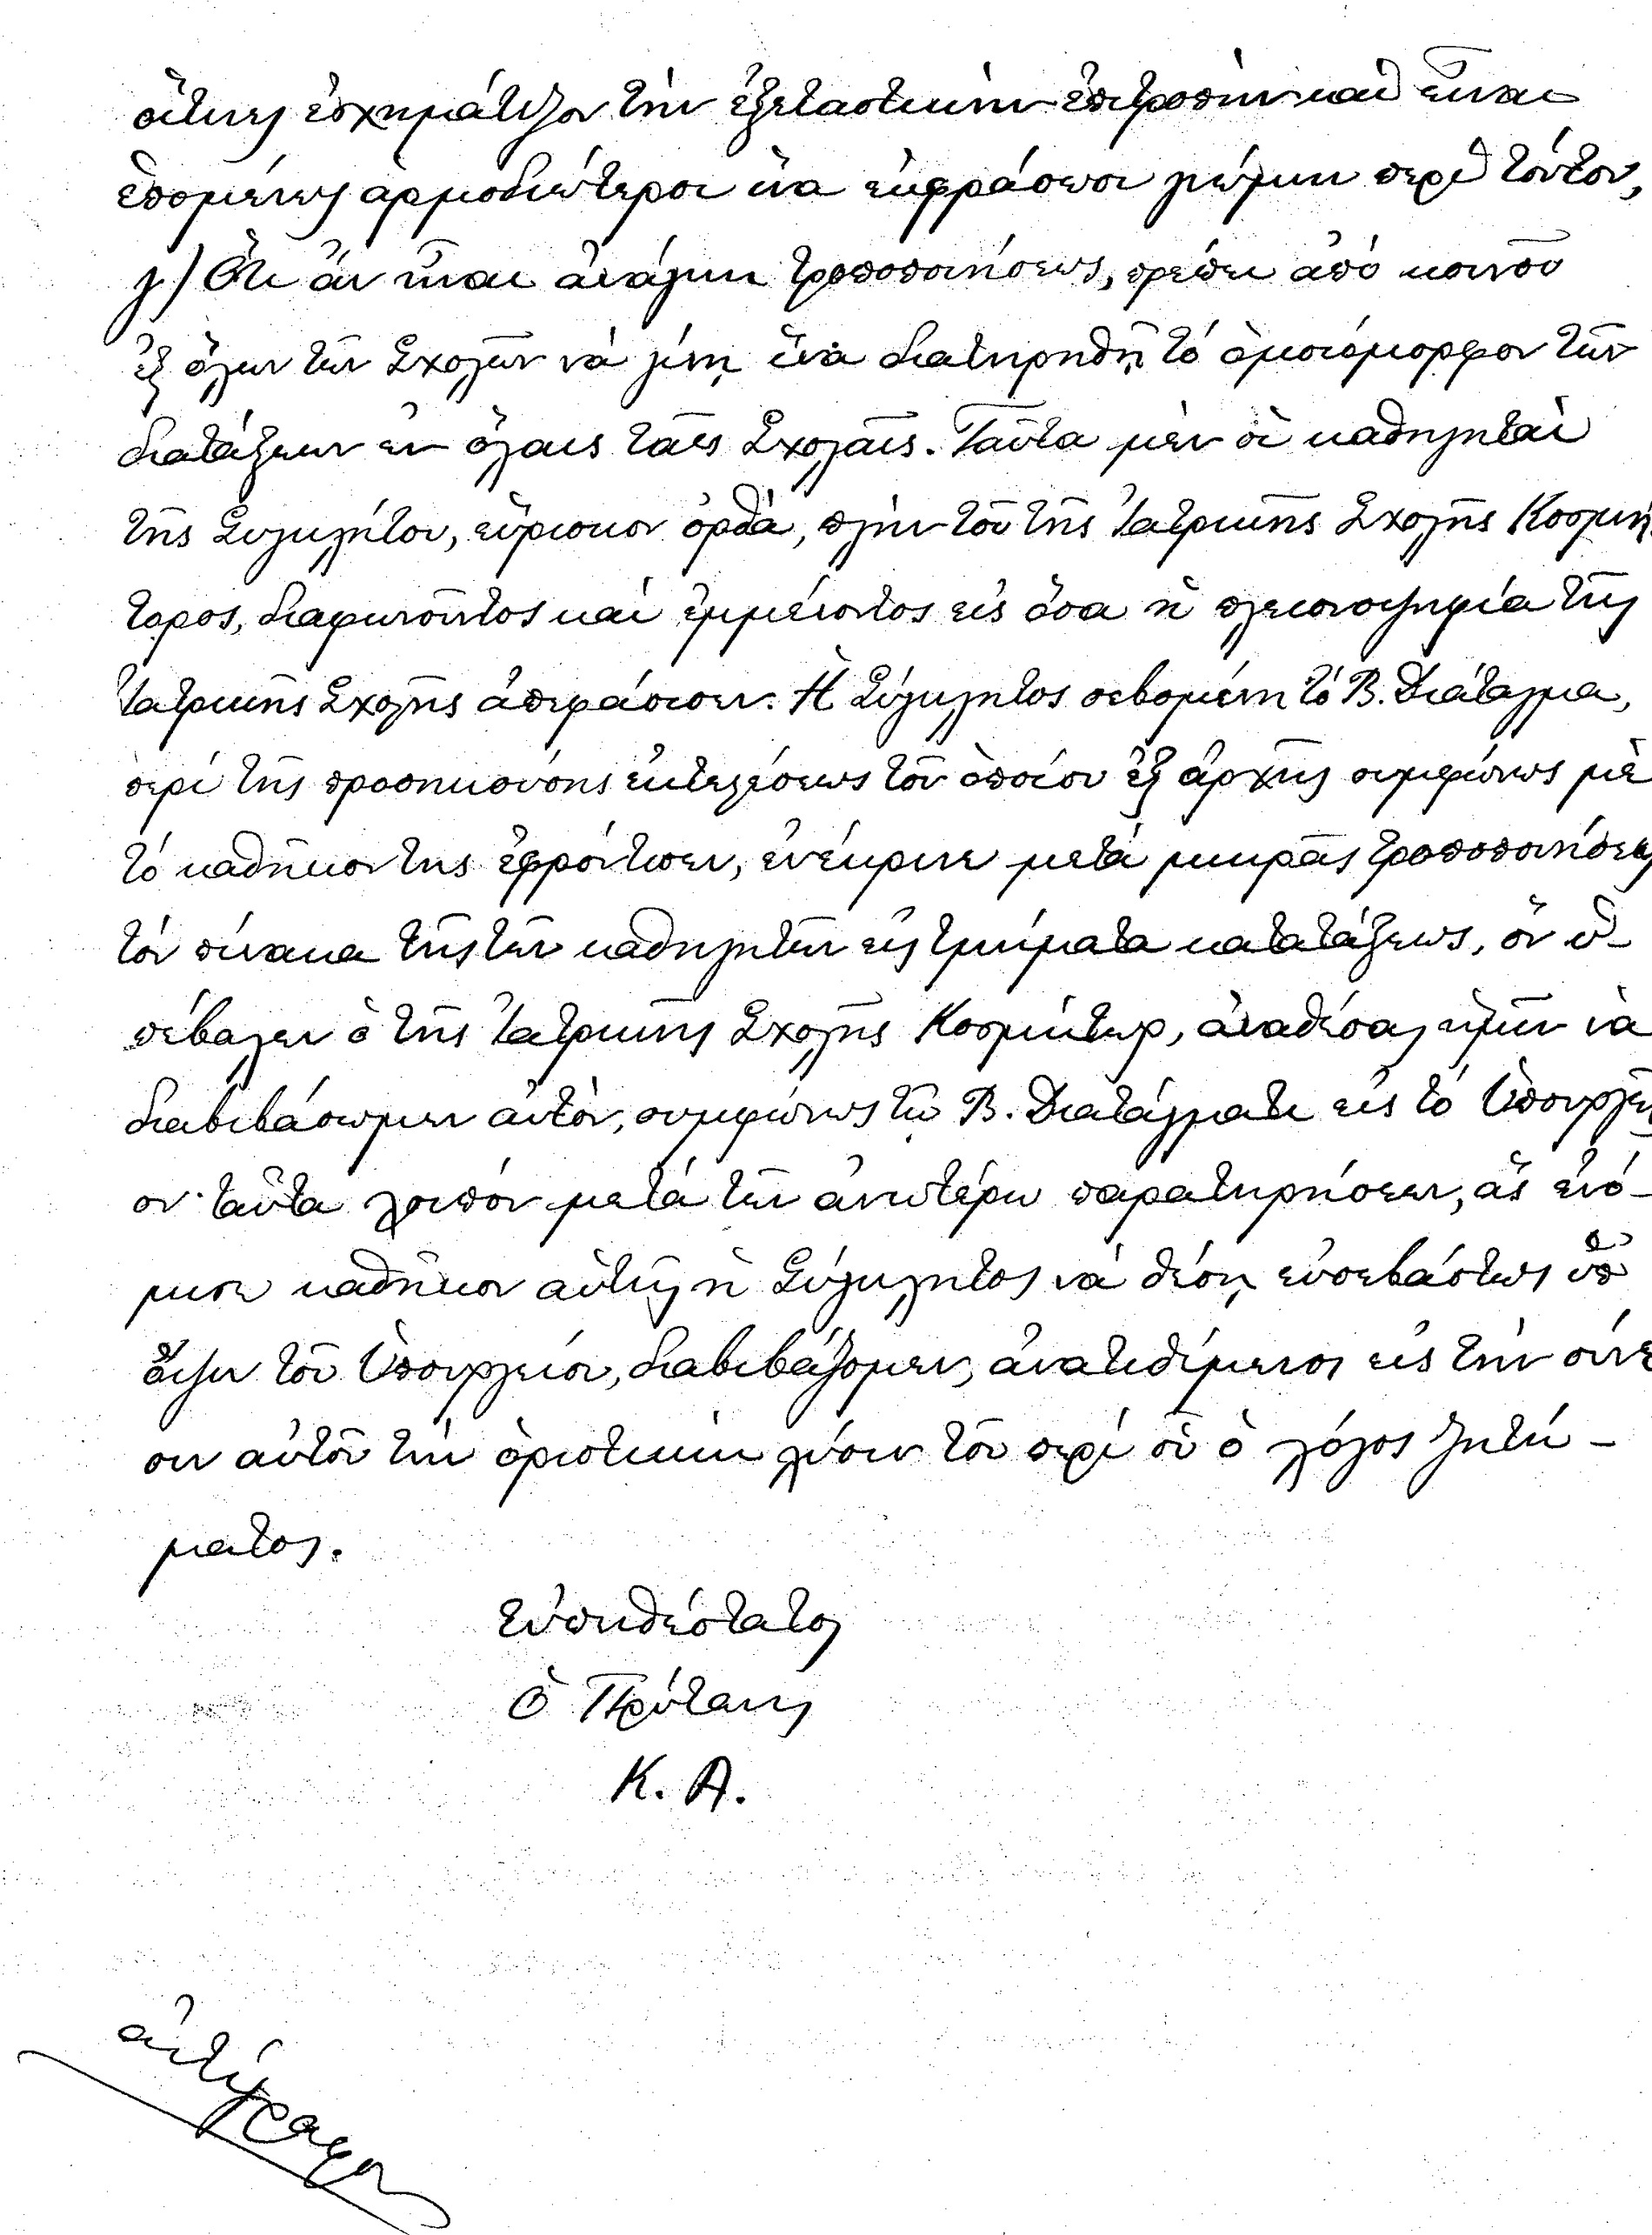 οἵτινες ἐσχημάτιζον τὴν ἐξεταστικὴν ἐπιτροπὴν καὶ εἶναι
ἑπομένως ἁρμοδιώτεροι ἵνα ἐκφράσωσι γνώμην περὶ τούτου,
γ) Ὅτι ἂν ἦναι ἀνάγκη τροποποιήσεως, πρέπει ἀπὸ κοινοῦ
ἐξ ὅλων τῶν Σχολῶν νὰ γίνῃ ἵνα διατηρηθῇ τὸ ὁμοιόμορφον τῶν
διατάξεων ἐν ὅλαις ταῖς Σχολαῖς. Ταῦτα μὲν οἱ καθηγηταὶ
τῆς Συγκλήτου, εὕρισκον ὀρθὰ, πλὴν τοῦ τῆς Ἰατρικῆς Σχολῆς Κοσμή-
τορος, διαφωνοῦντος καὶ ἐμμένοντος εἰς ὅσα ἡ πλειονοψηφία τῆς
Ἰατρικῆς Σχολῆς ἀπεφάσισεν. Ἡ Σύγκλητος σεβομένη τὸ Β. Διάταγμα,
περὶ τῆς προσηκούσης ἐκτελέσεως τοῦ ὁποίου ἐξ ἀρχῆς συμφώνως μὲ
τὸ καθῆκον της ἐφρόντισεν, ἐνέκρινε μετὰ μικρᾶς τροποποιήσεως
τὸν πίνακα τῆς τῶν καθηγητῶν εἰς τμήματα κατατάξεως, ὃν ὑ-
πέβαλεν ὁ τῆς Ἰατρικῆς Σχολῆς Κοσμήτωρ, ἀναθέσασ ἡμῖν νὰ
διαβιβάσωμεν αὐτὸν, συμφώνως τῷ Β. Διατάγματι εἰς τὸ Ὑπουργεῖ
ον· ταῦτα λοιπὸν μετὰ τῶν ἀνωτέρω παρατηρήσεων, ἃς ἐνό-
μισε καθῆκον αὑτῆς ἡ Σύγκλητος νὰ θέσῃ εὐσεβάστως ὑπ'
ὄψιν τοῦ Ὑπουργείου, διαβιβάζομεν, ἀνατιθέμενοι εἰς τὴν σύνε
σιν αὐτοῦ τὴν ὁριστικὴν λύσιν τοῦ περὶ οὗ ὁ λόγος ζητή-
ματος.
Εὐπειθέστατος
Ὁ Πρύτανις
Κ. Α.
ἀντίγραφον